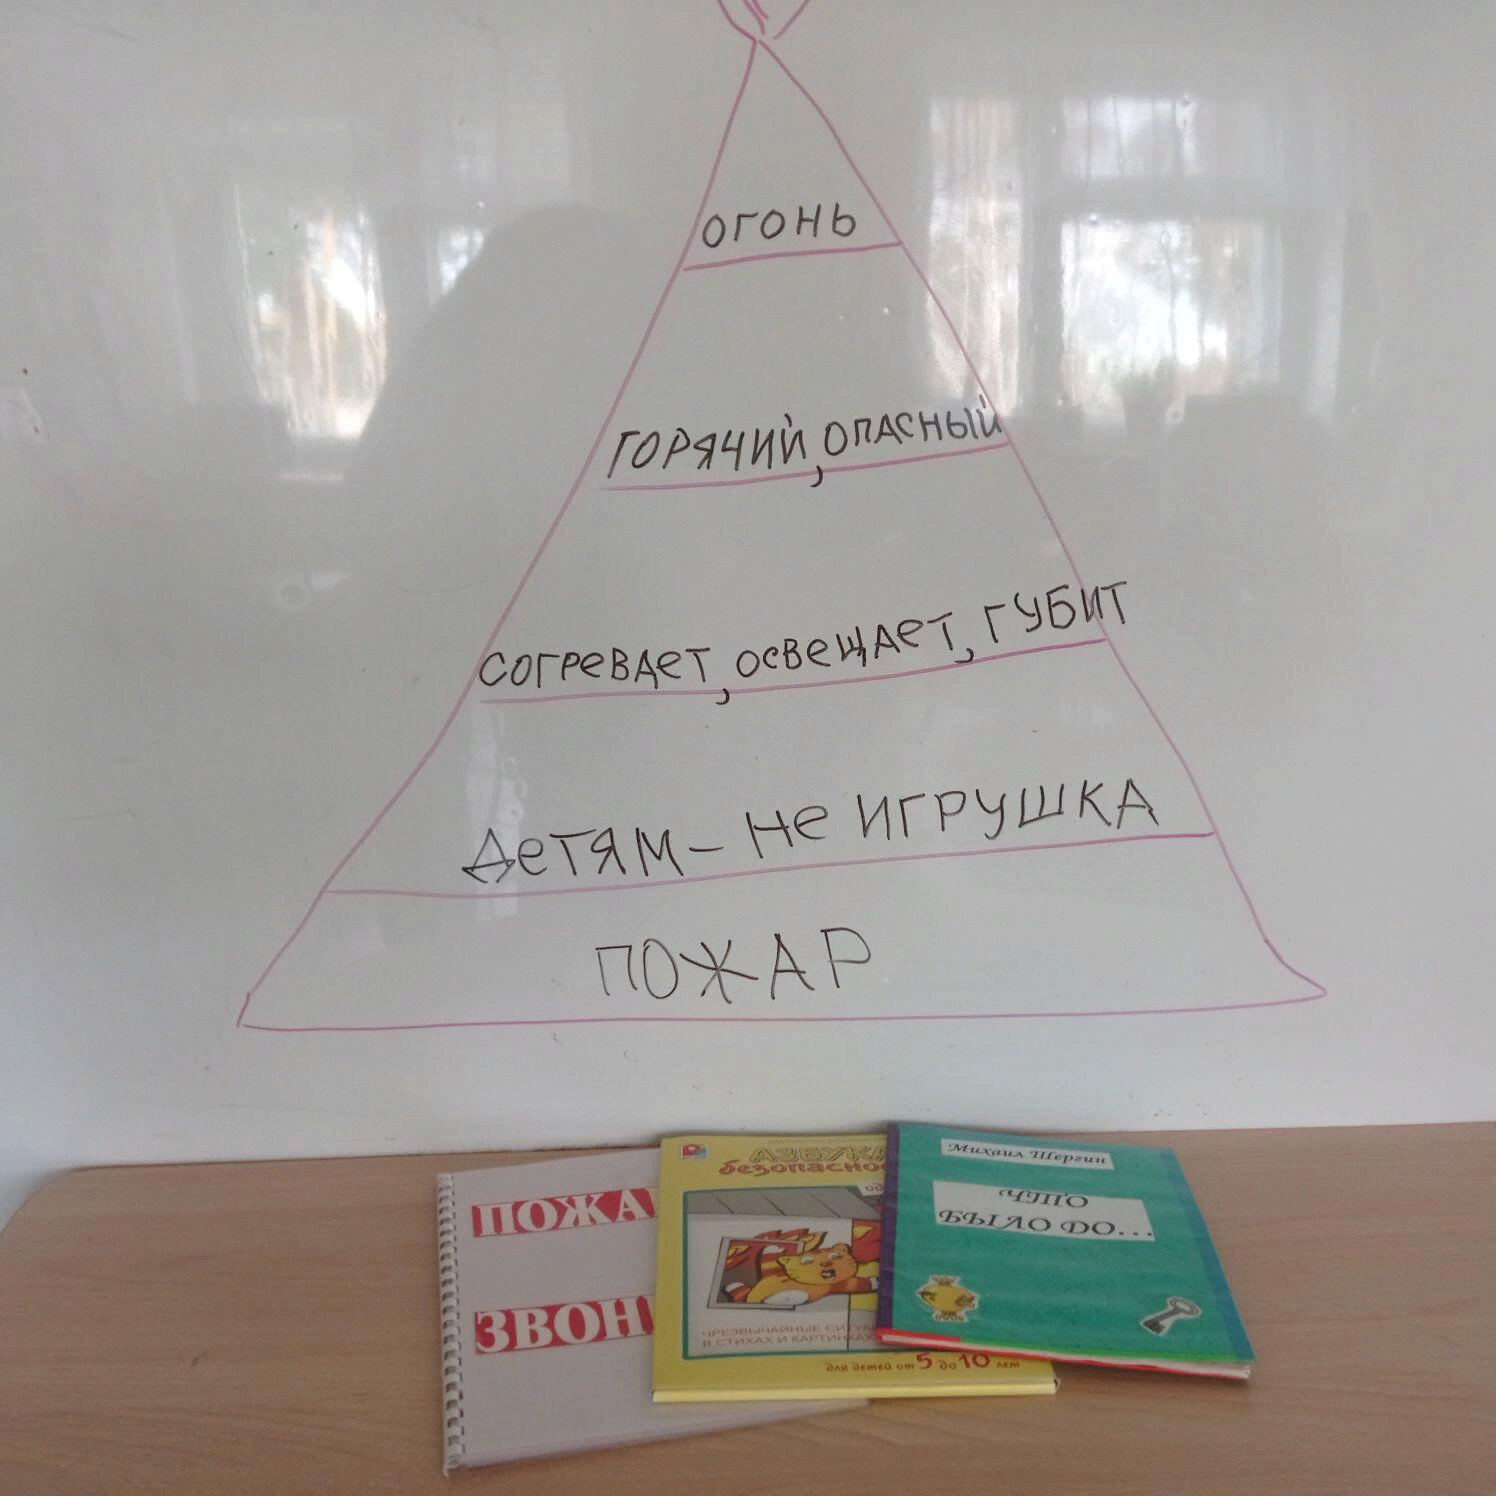 ОГОНЬ
ГОРЯЧИЙ, ОПАСНЫЙ
СОГРЕВАЕТ, ОСВЕЩАЕТ, ГУБИТ
ДЕТЯМ – НЕ ИГРУШКА
ПОЖАР
ПОЖА
ЗВОН
АЗБУКА
безопаснос
ЧРЕЗВЫЧАЙНЫЕ СИТУА
В СТИХАХ И КАРТИНКАХ
для детей от 5 до 10 лет
Михаил Шергин
ЧТО
БЫЛО ДО...